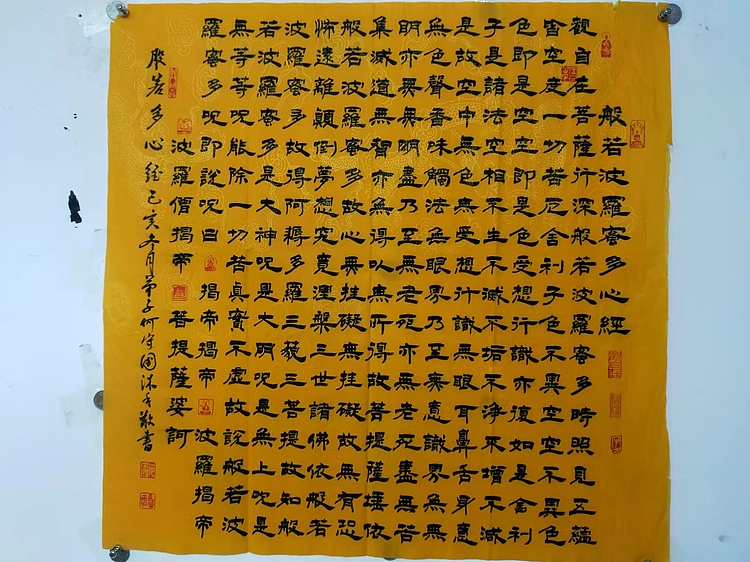 般若波羅蜜多心經
觀自在菩薩行深般若波羅蜜多時照見五蘊
皆空度一切苦厄舍利子色不異空空不異色
色即是空空即是色受想行識亦復如是舍利
子是諸法空相不生不滅不垢不淨不增不減
是故空中無色無受想行識無眼耳鼻舌身意
無色聲香味觸法無眼界乃至無意識界無無
明亦無無明盡乃至無老死亦無老死盡無苦
集滅道無智亦無得以無所得故菩提薩埵依
般若波羅蜜多故心無挂礙無挂礙故無有恐
怖遠離顛倒夢想究竟涅槃三世諸佛依般若
波羅蜜多故得阿耨多羅三藐三菩提故知般
若波羅蜜多是大神呪是大明呪是無上呪是
無等等呪能除一切苦真實不虛故說般若波
羅蜜多呪即說呪曰 揭帝揭帝 波羅揭帝
波羅僧揭帝 菩提薩婆訶
般若多心經己亥月弟子何守國沐手敬書